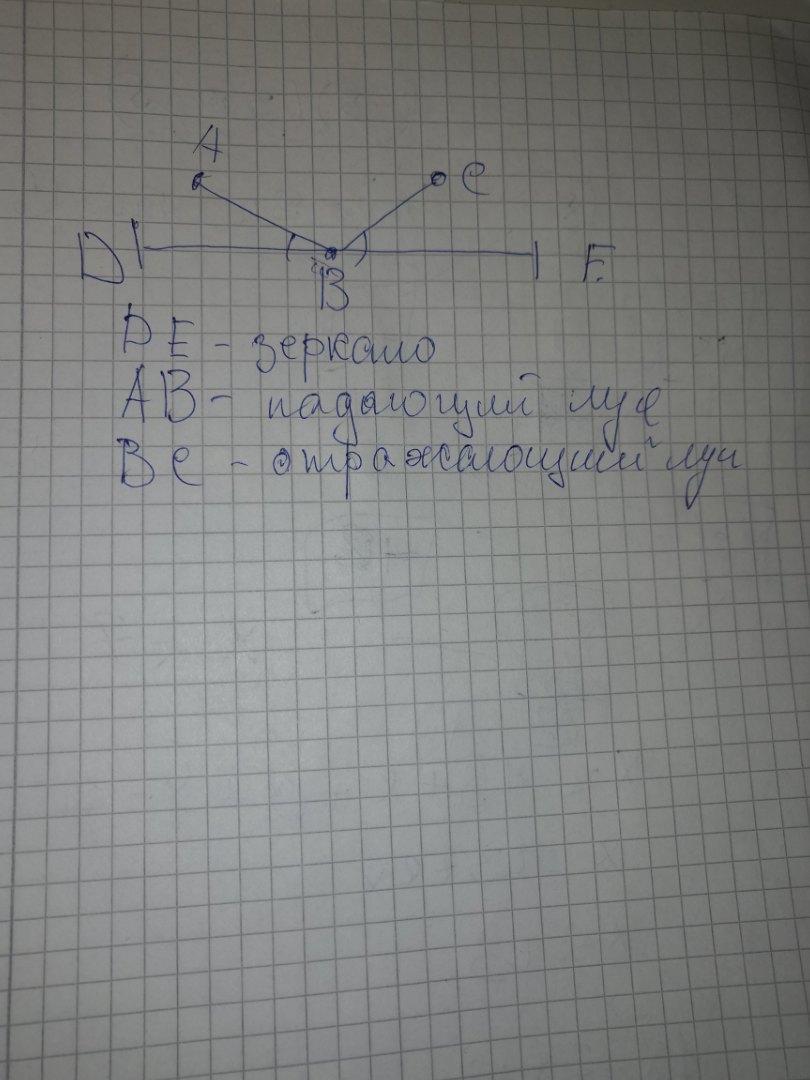 A
C
D
E
B
DE - зеркало
AB - падающий луч
BC - отражающий луч